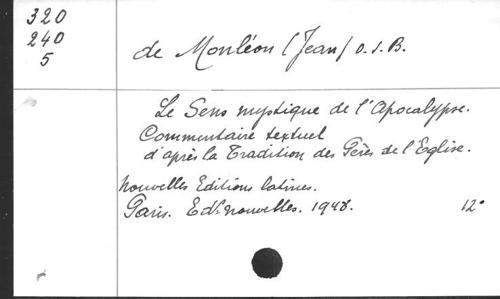 320
240
5
de Monléon (Jean) O.S.B.
Le Sens mystique de l'Apocalypse.
Commentaire textuel
d'après la Tradition des Pères de l'Eglise.
Nouvelles Editions latines.
Paris. Ed. nouvelles. 1948. 12°